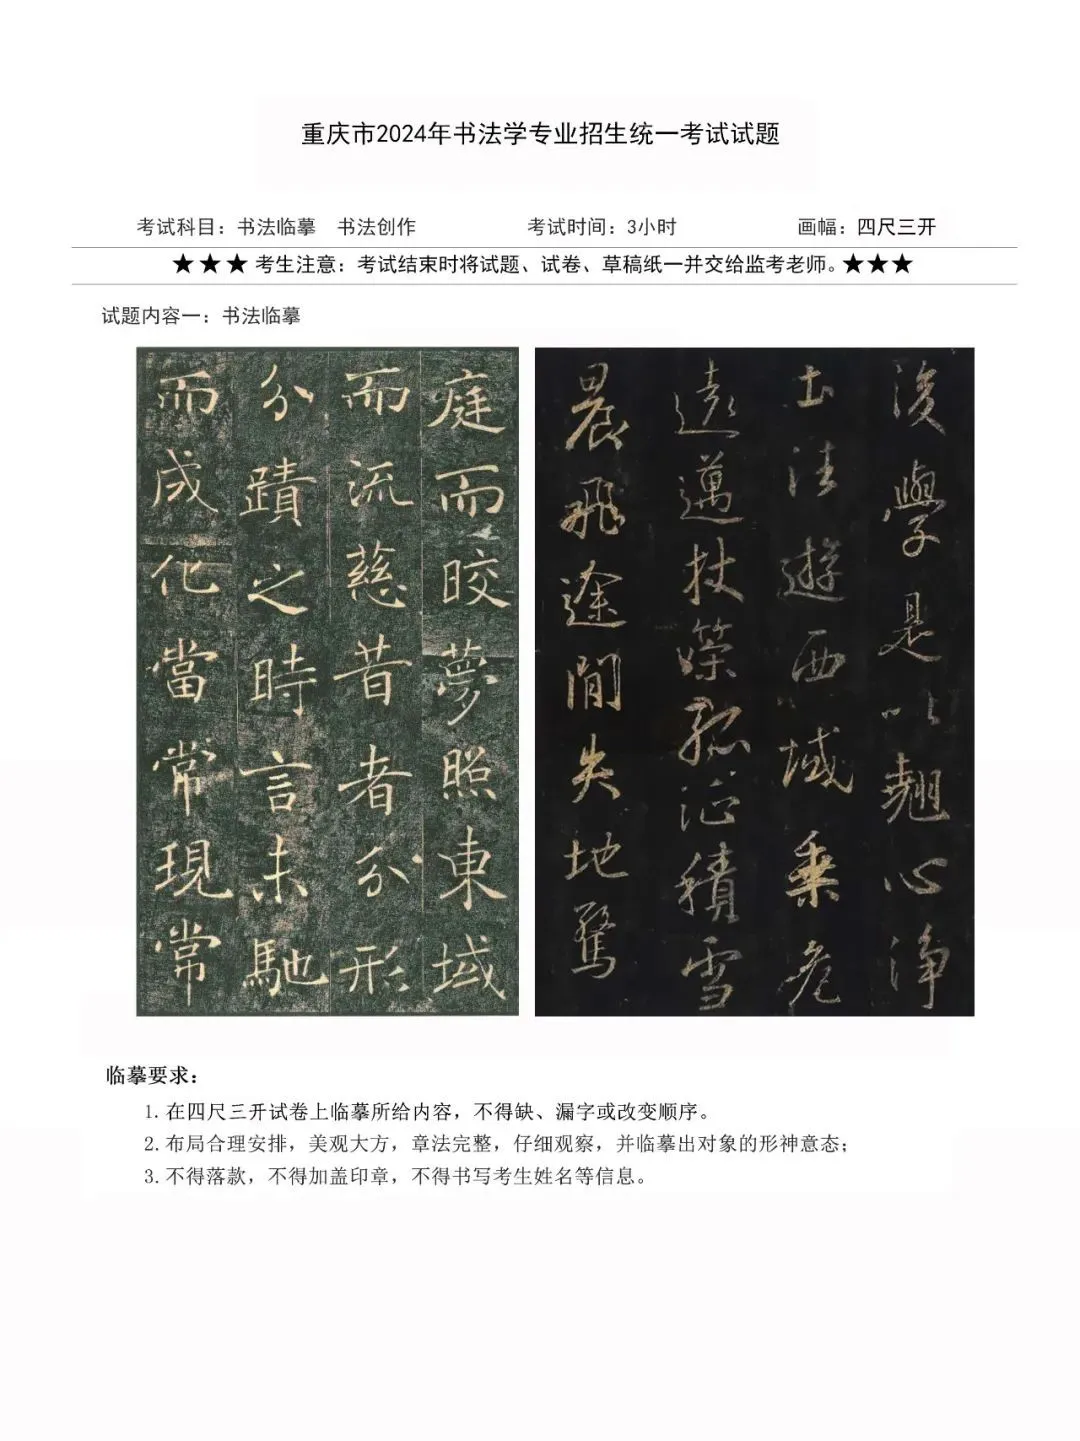 重庆市2024年书法学专业招生统一考试试题
考试科目：书法临摹　书法创作　考试时间：3小时　画幅：四尺三开
★★★考生注意：考试结束时将试题、试卷、草稿纸一并交给监考老师。★★★
试题内容一：书法临摹
庭而皎夢照東域
而流慈昔者分形
分蹟之時言未馳
而成化當常現常
後學是以翹心淨
土法遊西域乗危
遠邁杖策孤征積雪
晨飛途間失地驚
临摹要求：
1.在四尺三开试卷上临摹所给内容，不得缺、漏字或改变顺序。
2.布局合理安排，美观大方，章法完整，仔细观察，并临摹出对象的形神意态；
3.不得落款，不得加盖印章，不得书写考生姓名等信息。